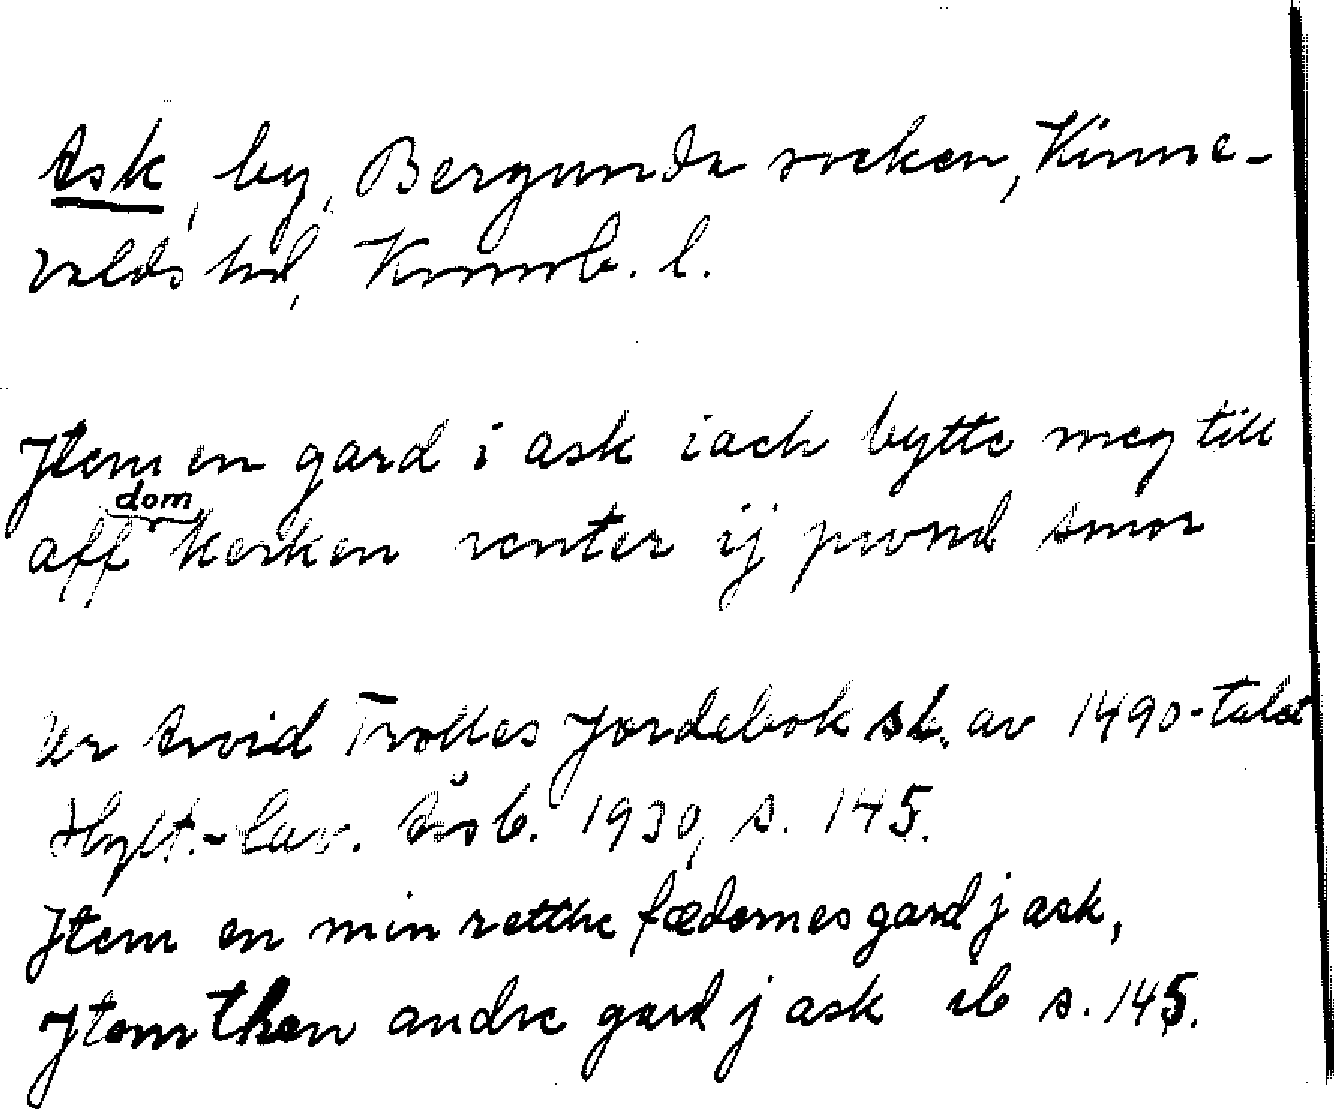 Ask, by, Bergunda socken, Kinne-
valds hd, Kronob. l.
Jtem en gard i ask iach bytte meg till
aff domkerken renter ij pwnd smør
Ur Arvid Trolles Jordebok sl. av 1490-talet
Hylt.-Cav. Årsb. 1930, s. 145.
Jtem en min retthe fædernes gard j ask,
Jtem then andre gard j ask ib s. 145.